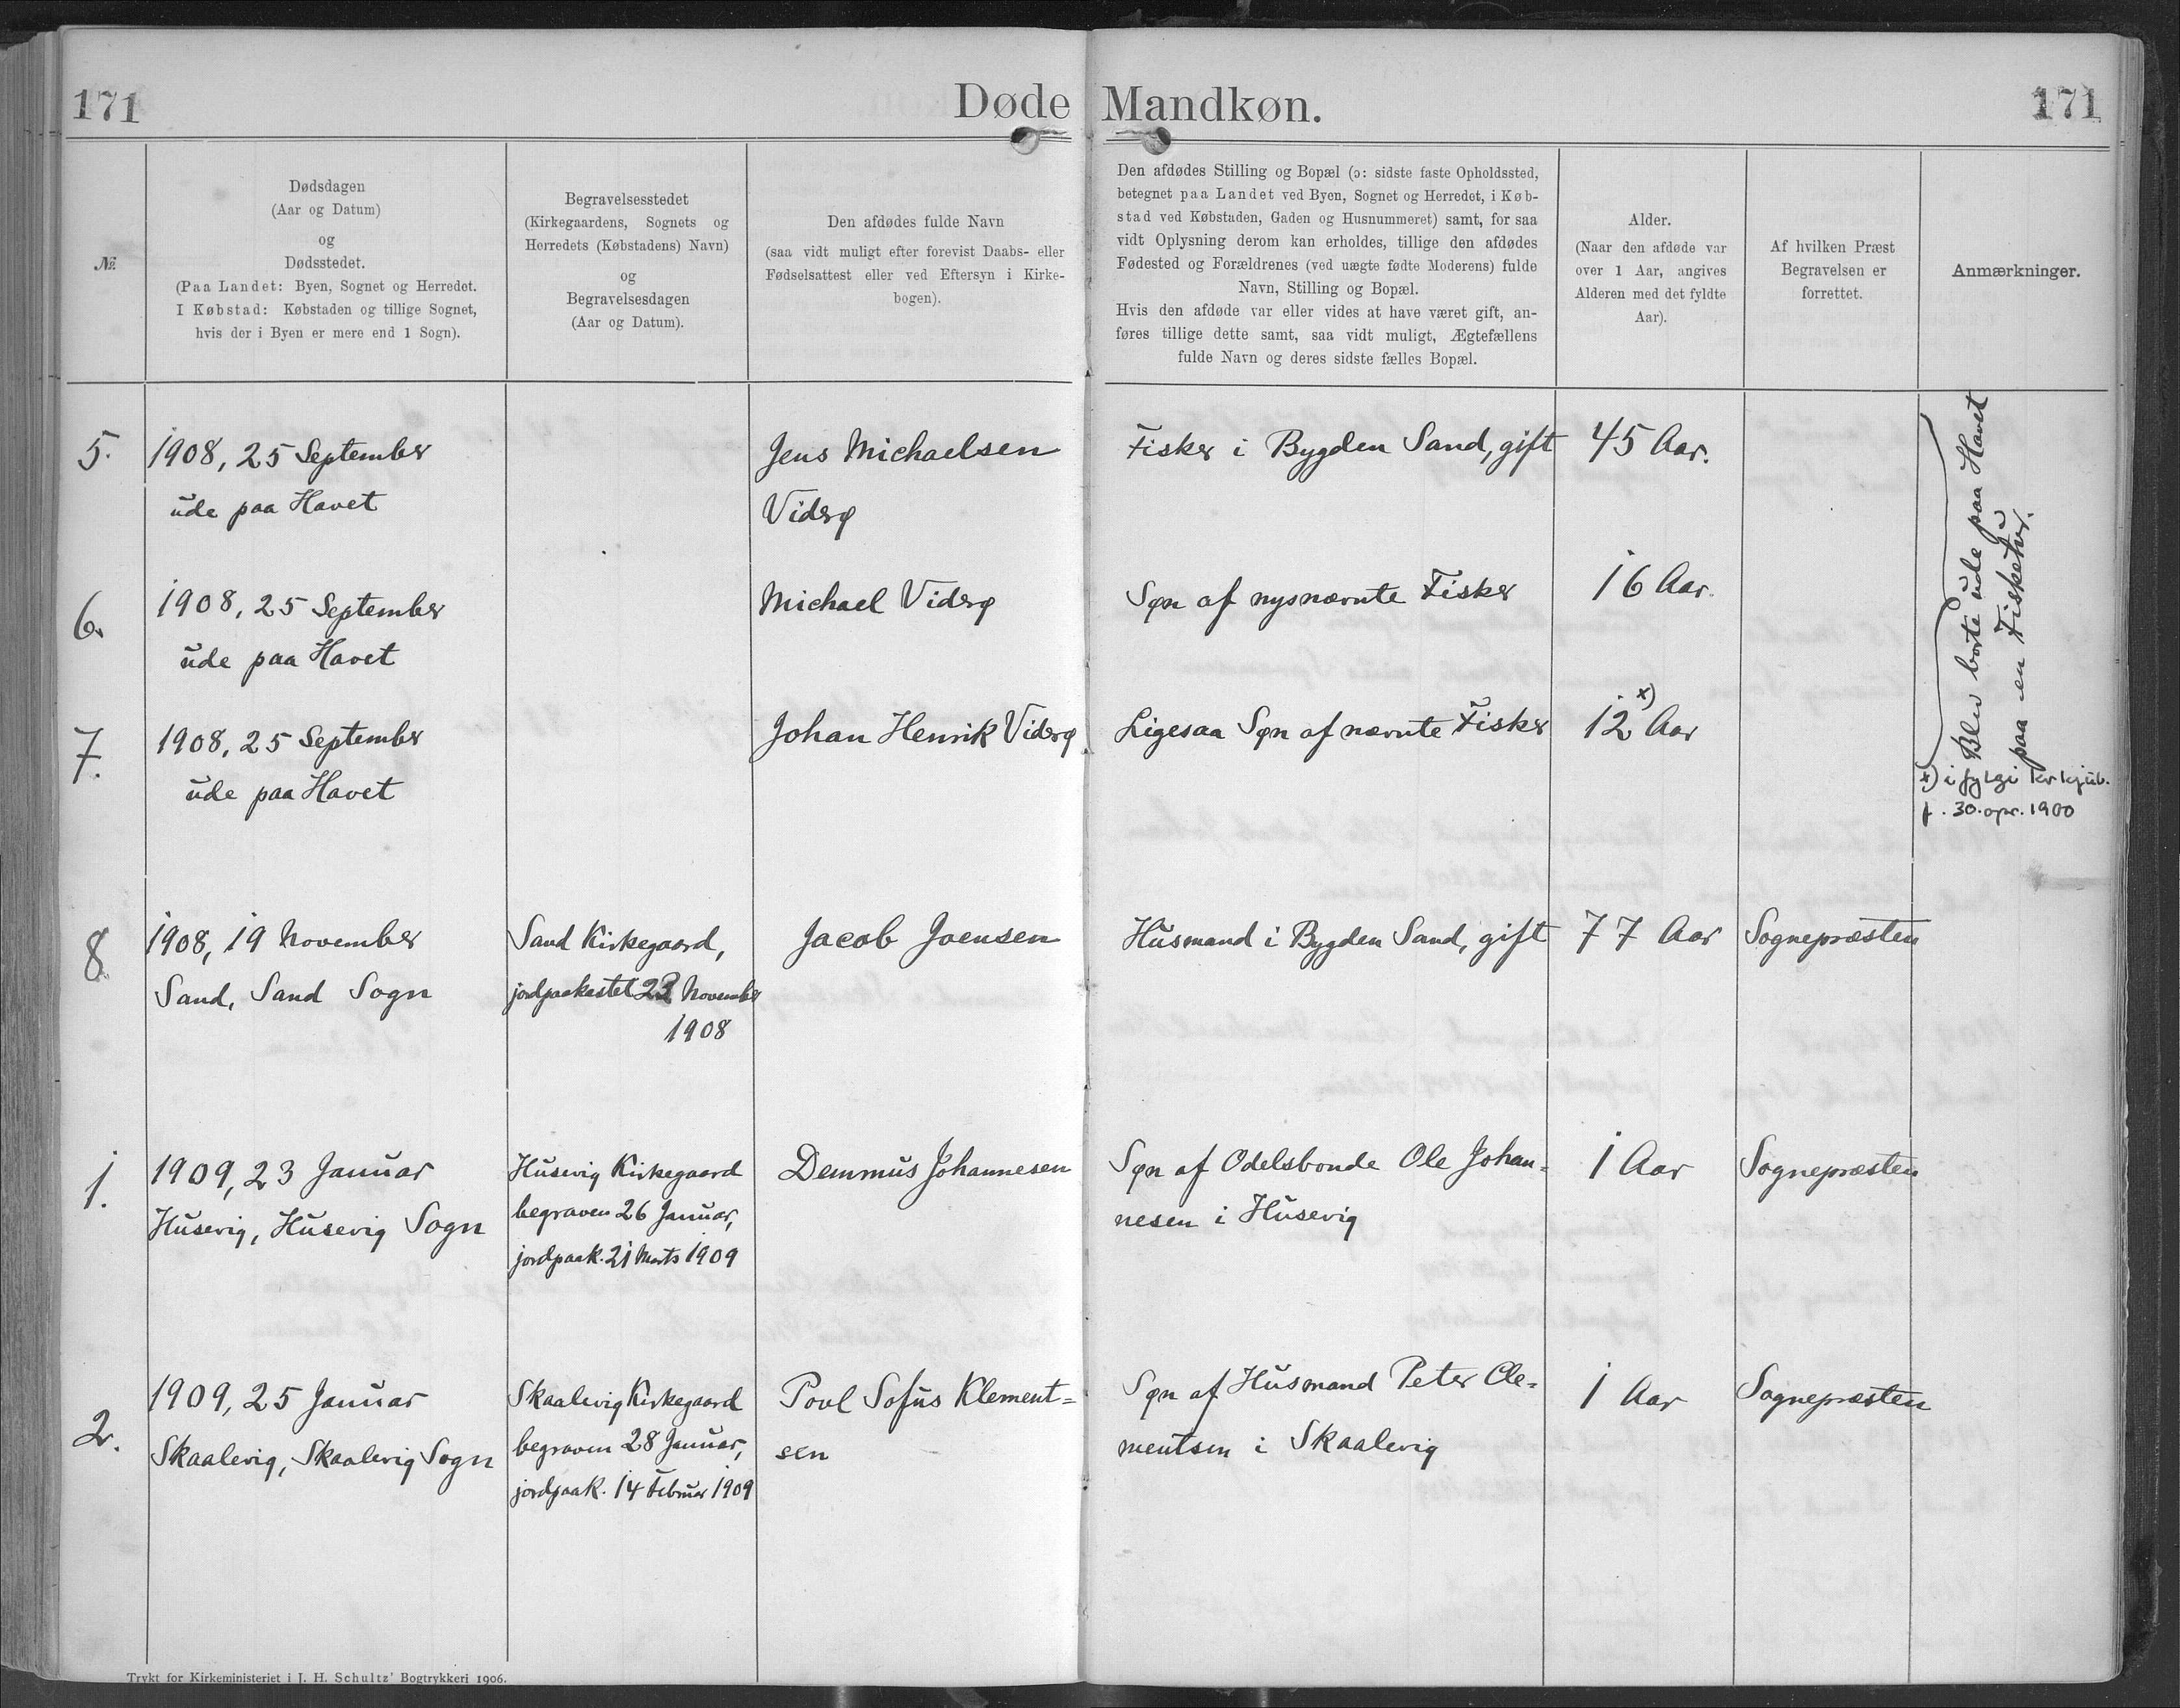 171
Døde Mandkøn.
171
№
Dødsdagen
(Aar og Datum)
og
Dødsstedet.
(Paa Landet: Byen, Sognet og Herredet.
I Købstad: Købstaden og tillige Sognet,
hvis der i Byen er mere end 1 Sogn).
Begravelsesstedet
(Kirkegaardens, Sognets og
Herredets (Købstadens) Navn)
og
Begravelsesdagen
(Aar og Datum).
Den afdødes fulde Navn
(saa vidt muligt efter forevist Daabs- eller
Fødselsattest eller ved Eftersyn i Kirke-
bogen).
Den afdødes Stilling og Bopæl (ɔ: sidste faste Opholdssted,
betegnet paa Landet ved Byen, Sognet og Herredet, i Køb-
stad ved Købstaden, Gaden og Husnummeret) samt, for saa
vidt Oplysning derom kan erholdes, tillige den afdødes
Fødested og Forældrenes (ved uægte fødte Moderens) fulde
Navn, Stilling og Bopæl.
Hvis den afdøde var eller vides at have været gift, an-
føres tillige dette samt, saa vidt muligt, Ægtefællens
fulde Navn og deres sidste fælles Bopæl.
Alder.
(Naar den afdøde var
over 1 Aar, angives
Alderen med det fyldte
Aar).
Af hvilken Præst
Begravelsen er
forrettet.
Anmærkninger.
5.
1908, 25 September
ude paa Havet
Jens Michaelsen
Viderø
Fisker i Bygden Sand, gift
45 Aar.
Blev borte ude paa Havet
paa en Fisketur.
6.
1908, 25 September
ude paa Havet
Michael Viderø
Søn af nysnævnte Fisker
16 Aar.
7.
1908, 25 September
ude paa Havet
Johan Henrik Viderø
Ligesaa Søn af nævnte Fisker
12 x) Aar
x) i fylgi kirkjub.
f. 30. apr. 1900
8
1908, 19 November
Sand, Sand Sogn
Sand Kirkegaard,
jordpaakastet 22 November
1908
Jacob Joensen
Husmand i Bygden Sand, gift
77 Aar
Sognepræsten
1.
1909, 23 Januar
Husevig, Husevig Sogn
Husevig Kirkegaard
begraven 26 Januar,
jordpaak. 21 Marts 1909
Demmus Johannesen
Søn af Odelsbonde Ole Johan-
nesen i Husevig
1 Aar
Sognepræsten
2.
1909, 25 Januar
Skaalevig, Skaalevig Sogn
Skaalevig Kirkegaard
begraven 28 Januar,
jordpaak. 14 Februar 1909
Povl Sofus Klement=
sen
Søn af Husmand Peter Cle-
mentsen i Skaalevig
1 Aar
Sognepræsten
Trykt for Kirkeministeriet i J. H. Schultz' Bogtrykkeri 1906.